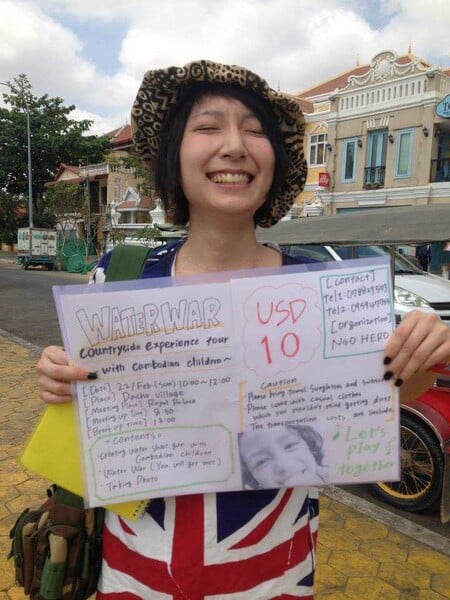 WATER WAR
countryside experience tour
with Cambodian children~
[Date] 22/Feb (sun) 10:00~12:00
[Place] Dacho village
[Meeting Place] Royal Palace
[Meeting up Time] 8:50
[Break up time] 13:00
*contents*
·Creating water shoot gun with
Cambodian children
·Water War (You will get wet)
·Taking Photo
USD
10
[contact]
tel1:
tel2:
[organization]
NGO HERO
Caution
Please bring towel, sunglasses and sunscreen
Please come with casual clothes
which you wouldn't mind getting dirty
The transportation costs are include
♪ Let's
play
together